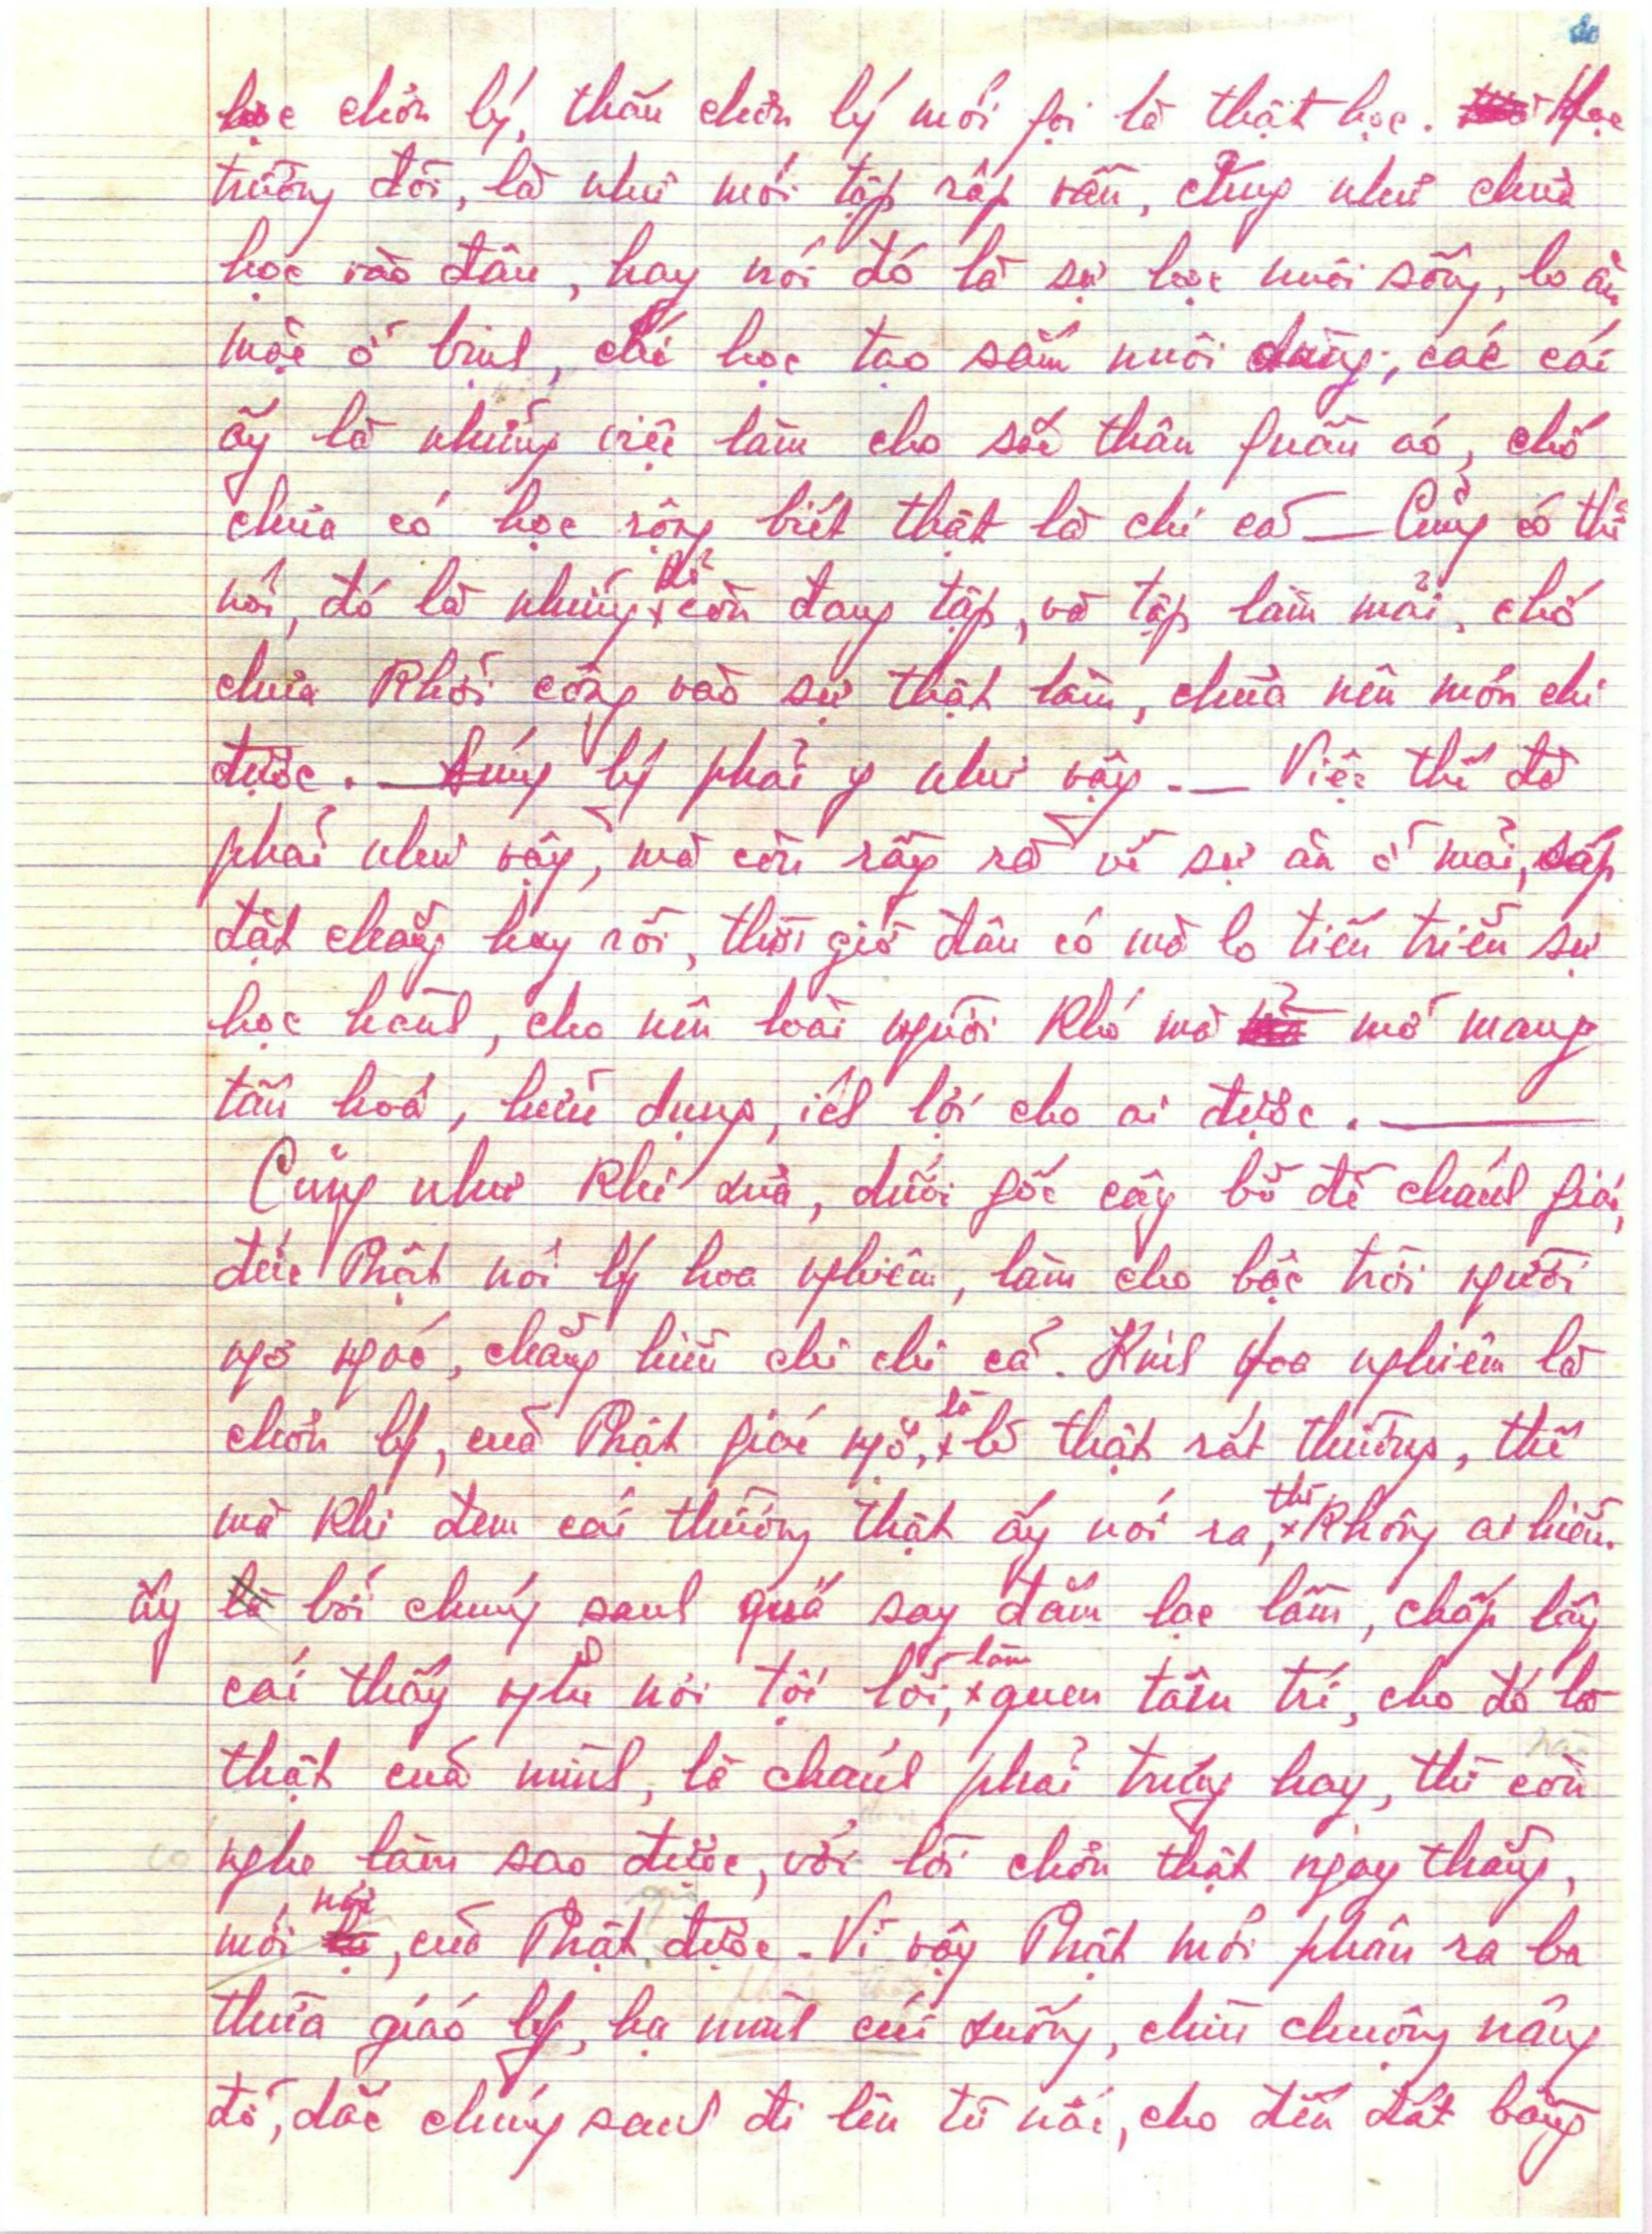 học chơn lý, thấu chơn lý mới gọi là thật học. Học
trường đời, là như mới tập ráp vần, cũng như chưa
học vào đâu, hay nói đó là sự học nuôi sống, lo ăn
mặc ở bịnh, chỉ học tạo sắm nuôi dùng, các cái
ấy là những việc làm cho sắc thân quần áo, chớ
chưa có học rộng biết thật là chi cả — Cũng có thể
nói, đó là những kẻ còn đang tập, và tập làm mãi, chớ
chưa khởi công vào sự thật làm, chưa nên món chi
được. — Đúng lý phải y như vậy. — Việc thế đã
phải như vậy, mà còn rầy rà về sự ăn ở mãi, sắp
đặt chẳng hay rồi, thời giờ đâu có mà lo tiến triển sự
học hành, cho nên loài người khó mà mở mang
tấn hoá, hữu dụng, ích lợi cho ai được. —
Cũng như khi xưa, dưới gốc cây bồ đề chánh giác,
đức Phật nói lý hoa nghiêm, làm cho bậc trời người
ngơ ngác, chẳng hiểu chi chi cả. Kinh Hoa nghiêm là
chơn lý, của Phật giác ngộ, là lẽ thật rất thường, thế
mà khi đem cái thường thật ấy nói ra, thì không ai hiểu.
ấy bởi chúng sanh quá say đắm lạc lầm, chấp lấy
cái thấy nghe nơi tội lỗi, làm quen tâm trí, cho đó là
thật của mình, là chánh phải trúng hay, thì còn
nghe làm sao được, với lời chơn thật ngay thẳng,
mới nói, của Phật được. Vì vậy Phật mới phân ra ba
thừa giáo lý, hạ mình cúi xuống, chìu chuộng nâng
đỡ, dắc chúng sanh đi lên từ nấc, cho đến đất bằng